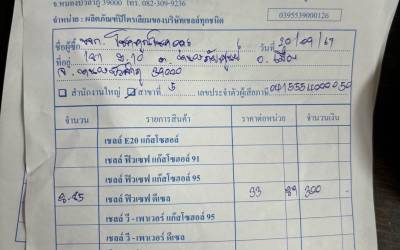 จ.หนองบัวลำภู 39000 โทร. 082-309-9236
จำหน่าย : ผลิตภัณฑ์ปิโตรเลียมของบริษัทเชลล์ทุกชนิด
0395539000126
ชื่อผู้ซื้อ หจก. วันที่ 20/09/67
ที่อยู่ 127 ม.10 ต. หนองภัยศูนย์ อ. เมือง
จ. หนองบัวลำภู 39000
สำนักงานใหญ่ สาขาที่ 5 เลขประจำตัวผู้เสียภาษี
จำนวน รายการสินค้า ราคาต่อหน่วย จำนวนเงิน
เชลล์ E20 แก๊สโซฮอล์
เชลล์ ฟิวเซฟ แก๊สโซฮอล์ 91
เชลล์ ฟิวเซฟ แก๊สโซฮอล์ 95
8.85 เชลล์ ฟิวเซฟ ดีเซล 33 89 300
เชลล์ วี - เพาเวอร์ แก๊สโซฮอล์ 95
เชลล์ วี - เพาเวอร์ ดีเซล